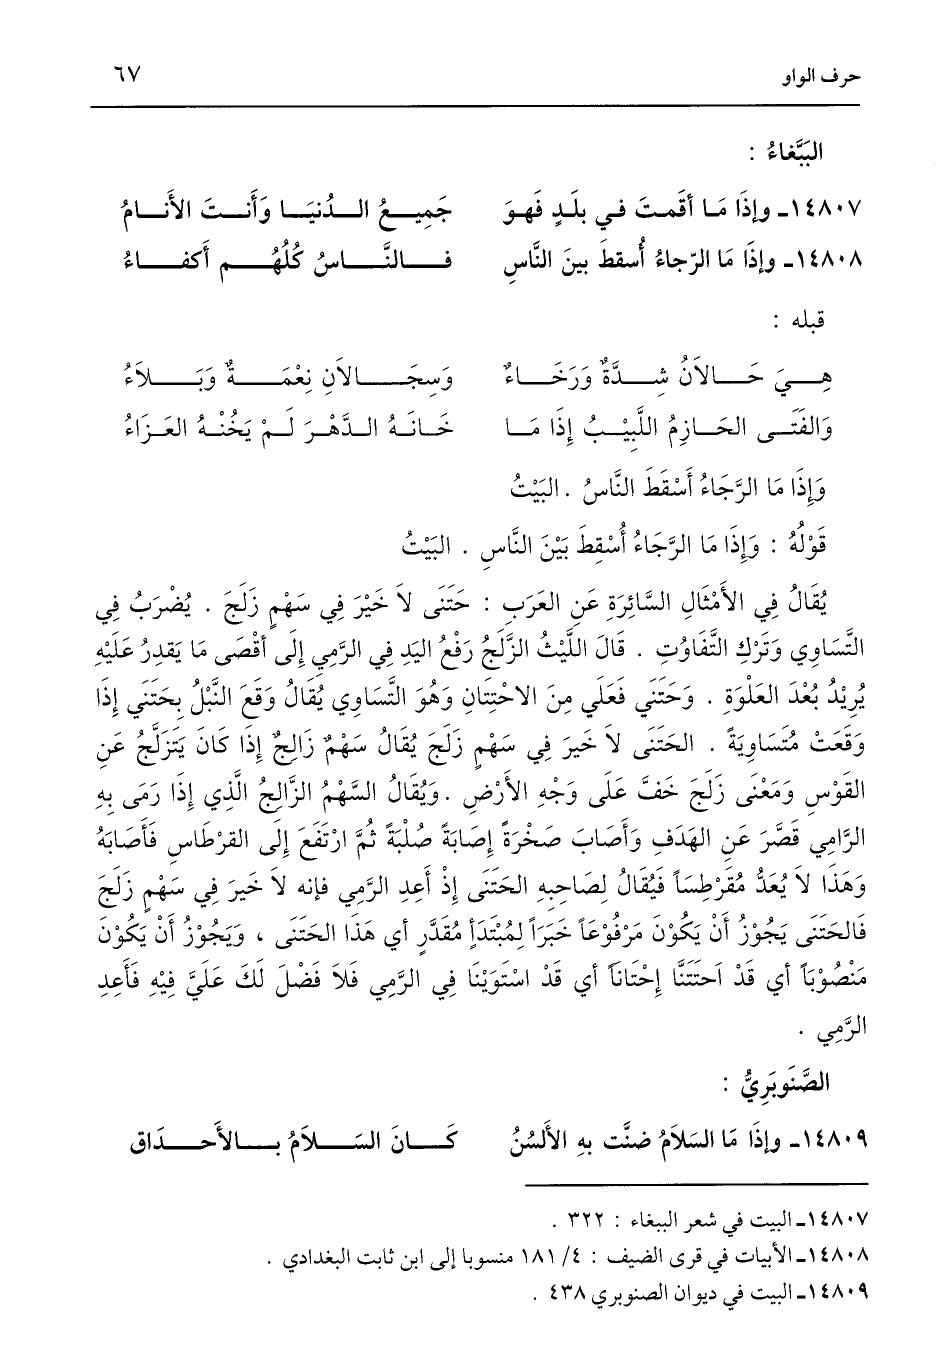 حرف الواو ٦٧
البَبَّغاءُ :
١٤٨٠٧ـ وإذَا مَا أقمتَ في بلَدٍ فَهوَ جَمِيعُ الدُنيَا وَأَنتَ الأَنامُ
١٤٨٠٨ـ وإذَا مَا الرّجاءُ أُسقطَ بينَ النَّاسِ فَالنَّاسُ كُلُهُم أَكفَاءُ
قبله :
هِيَ حَالاَنُ شِدَّةٌ وَرَخَاءٌ وَسِجَالاَنِ نِعْمَةٌ وَبَلاَءُ
وَالفَتَى الحَازِمُ اللَّبِيْبُ إِذَا مَا خَانَهُ الدَّهْرَ لَمْ يَخُنْهُ العَزَاءُ
وَإِذَا مَا الرَّجَاءُ أَسْقَطَ النَّاسُ . البَيْتُ
قَوْلُهُ : وَإِذَا مَا الرَّجَاءُ أُسْقِطَ بَيْنَ النَّاسِ . البَيْتُ
يُقَالُ فِي الأَمْثَالِ السَّائِرَةِ عَنِ العَرَبِ : حَتَنَى لاَ خَيْرَ فِي سَهْمٍ زَلَجَ . يُضْرَبُ فِي
التَّسَاوِي وَتَرْكِ التَّفَاوُتِ . قَالَ اللَّيْثُ الزَّلَجُ رَفْعُ اليَدِ فِي الرَّمِي إِلَى أَقْصَى مَا يَقدِرُ عَلَيْهِ
يُرِيْدُ بُعْدَ العَلْوَةِ . وَحَتَنَي فَعَلَي مِنَ الاحْتِتَانِ وَهُوَ التَّسَاوِي يُقَالُ وَقَعَ النَّبْلُ بِحَتَنَي إِذَا
وَقَعَتْ مُتَسَاوِيَةً . الحَتَنَى لاَ خَيرَ فِي سَهْمٍ زَلَجَ يُقَالُ سَهْمٌ زَالِجٌ إِذَا كَانَ يَتَزَلَّجُ عَنِ
القَوْسِ وَمَعْنَى زَلَجَ خَفَّ عَلَى وَجْهِ الأَرْضِ . وَيُقَالُ السَّهْمُ الزَّالِجُ الَّذِي إِذَا رَمَى بِهِ
الرَّامِي قَصَّرَ عَنِ الهَدَفِ وَأَصَابَ صَخْرَةً إِصَابَةً صُلبَةً ثُمَّ ارْتَفَعَ إِلَى القرْطَاسِ فَأَصَابَهُ
وَهَذَا لاَ يُعَدُّ مُقَرْطِسَاً فَيُقَالُ لِصَاحِبِهِ الحَتَنَى إِذْ أَعِدِ الرَّمِي فإنه لاَ خَيرَ فِي سَهْمٍ زَلَجَ
فَالحَتَنَى يَجُوْزُ أَنْ يَكُوْنَ مَرْفُوْعَاً خَبَرَاً لِمُبْتَدَأٍ مُقَدَّرٍ أي هَذَا الحَتَنَى ، وَيَجُوْزُ أَنْ يَكُوْنَ
مَنْصُوْبَاً أي قَدْ اَحتَتَنَّا إِحْتَاناً أي قَدْ اسْتَوَيْنَا فِي الرَّمِي فَلاَ فَضْلَ لَكَ عَلَيَّ فِيْهِ فَأَعِدِ
الرَّمِي .
الصَّنَوبَرِيُّ :
١٤٨٠٩ـ وإذَا مَا السَلاَمُ ضنَّت بهِ الأَلسُنُ كَانَ السَلاَمُ بالأَحدَاق
١٤٨٠٧ـ البيت في شعر الببغاء : ٣٢٢ .
١٤٨٠٨ـ الأبيات في قرى الضيف : ٤/ ١٨١ منسوبا إلى ابن ثابت البغدادي .
١٤٨٠٩ـ البيت في ديوان الصنوبري ٤٣٨ .